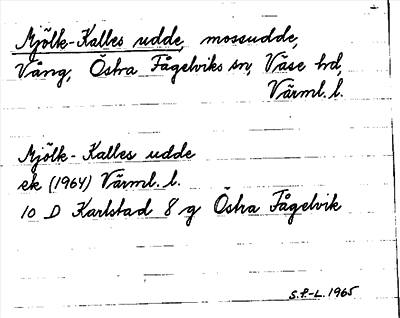 Mjölk-Kalles udde, mossudde,
Vång, Östra Fågelviks sn, Väse hd,
Värml. l.
Mjölk-Kalles udde
ek (1964) Värml. l.
10 D Karlstad 8 g Östra Fågelvik
S.F.-L. 1965